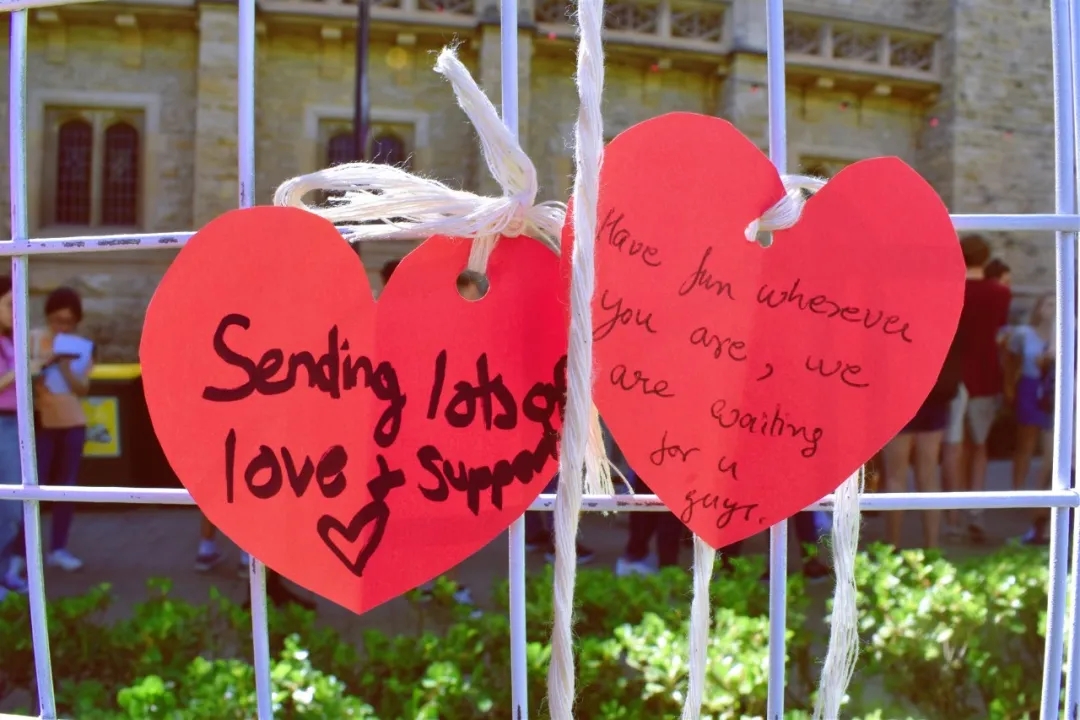 Sending lots of
love + support
Have fun wherever
you are, we
are waiting
for u
guys.